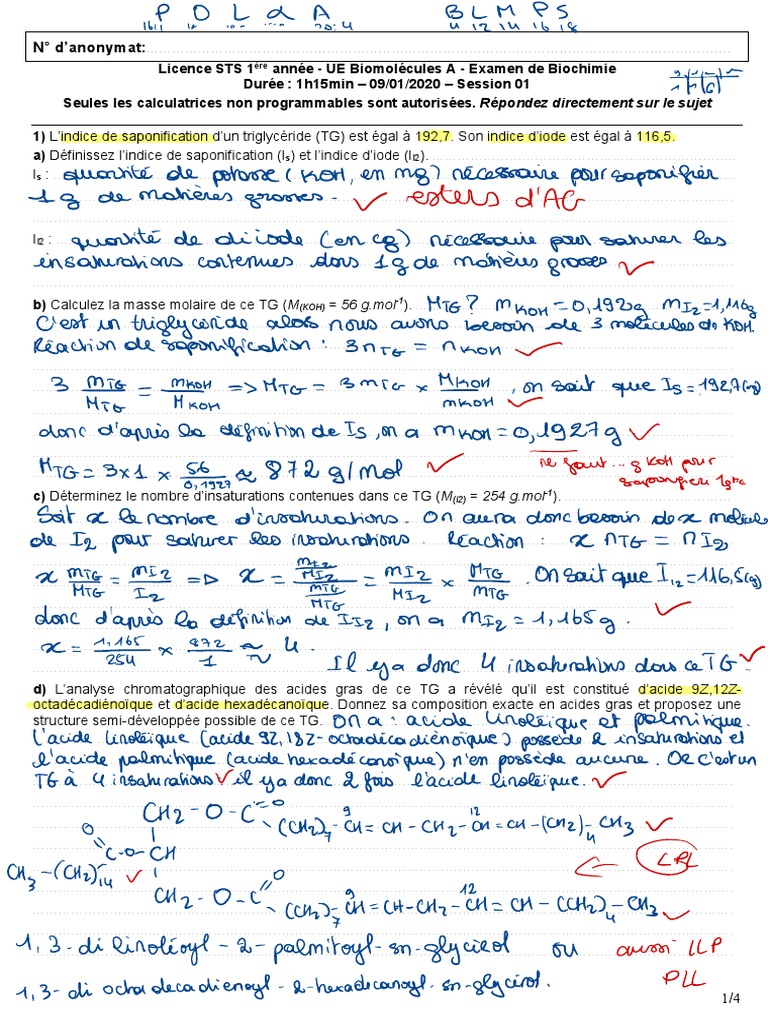 P O L α A B L M P S
16:1 18 20:4 4 12 14 16 18
N° d'anonymat:
Licence STS 1ère année - UE Biomolécules A - Examen de Biochimie
Durée : 1h15min – 09/01/2020 – Session 01
Seules les calculatrices non programmables sont autorisées. Répondez directement sur le sujet
1) L'indice de saponification d'un triglycéride (TG) est égal à 192,7. Son indice d'iode est égal à 116,5.
a) Définissez l'indice de saponification (Is) et l'indice d'iode (II2).
Is : quantité de potasse (KOH, en mg) nécessaire pour saponifier
1 g de matières grasses. ✓ esters d'AG
II2 : quantité de diiode (en cg) nécessaire pour saturer les
insaturations contenues dans 1 g de matières grasses ✓
b) Calculez la masse molaire de ce TG (M(KOH) = 56 g.mol-1). MTG ? mKOH = 0,192g mI2 = 1,116g
C'est un triglycéride alors nous avons besoin de 3 molécules de KOH.
Réaction de saponification : 3 nTG = nKOH ✓
3 mTG/MTG = mKOH/MKOH => MTG = 3 mTG × MKOH/mKOH, on sait que Is = 192,7 (mg) ✓
donc d'après la définition de Is, on a mKOH = 0,1927 g ✓
MTG = 3×1 × 56/0,1927 ≈ 872 g/mol ✓ il faut ... g KOH pour
saponifier 1g tg
c) Déterminez le nombre d'insaturations contenues dans ce TG (M(I2) = 254 g.mol-1).
Soit x le nombre d'insaturations. On aura donc besoin de x molécules
de I2 pour saturer les insaturations. Réaction : x nTG = nI2
x mTG/MTG = mI2/I2 => x = (mI2/MI2)/(mTG/MTG) = mI2/MI2 × MTG/mTG. On sait que II2 = 116,5 (g)
donc d'après la définition de II2, on a mI2 = 1,165 g. ✓
x = 1,165/254 × 872/1 ≈ 4. Il y a donc 4 insaturations dans ce TG ✓
d) L'analyse chromatographique des acides gras de ce TG a révélé qu'il est constitué d'acide 9Z,12Z-
octadécadiénoïque et d'acide hexadécanoïque. Donnez sa composition exacte en acides gras et proposez une
structure semi-développée possible de ce TG. On a : acide linoléique et palmitique.
L'acide linoléique (acide 9Z,18Z-octadécadiénoïque) possède 2 insaturations et
l'acide palmitique (acide hexadécanoïque) n'en possède aucune. Or c'est un
TG à 4 insaturations ✓ il y a donc 2 fois l'acide linoléique. ✓
CH2 - O - C = O
9 12
(CH2)7 - CH = CH - CH2 - CH = CH - (CH2)4 - CH3 ✓
O
C - O - CH
CH3 - (CH2)14 ✓
← LPL
CH2 - O - C = O
9 12
(CH2)7 - CH = CH - CH2 - CH = CH - (CH2)4 - CH3 ✓
1,3-dilinoléoyl-2-palmitoyl-sn-glycérol ou aussi LLP
1,3-di octadecadienoyl-2-hexadecanoyl-sn-glycérol. PLL
1/4